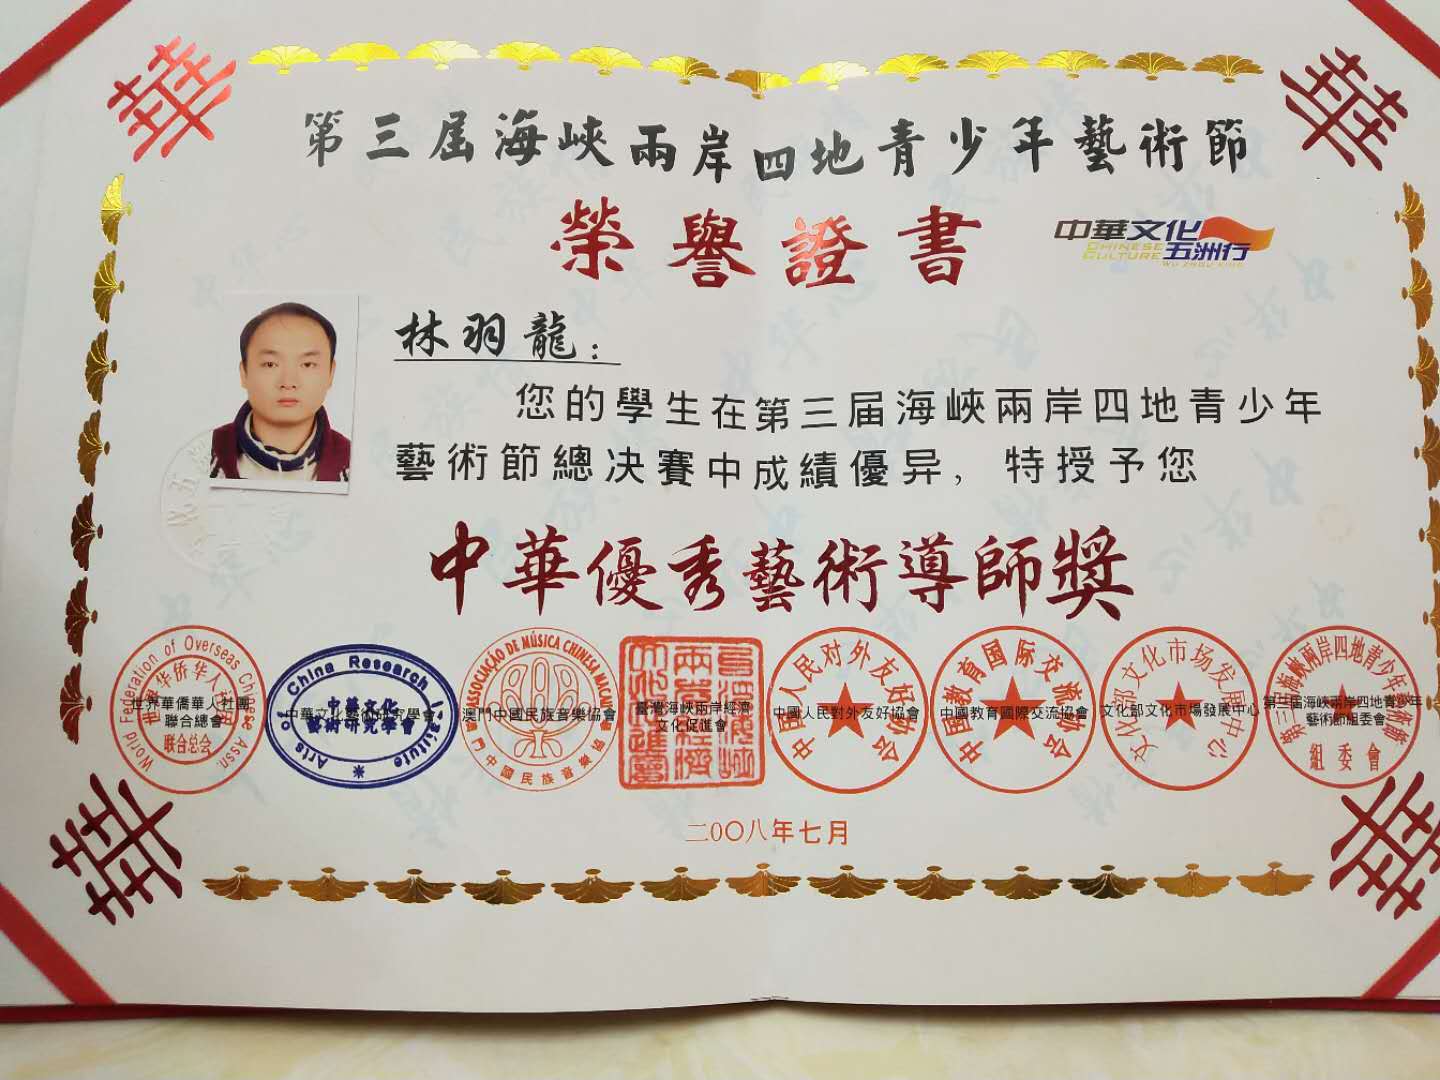 華
華
第三屆海峽兩岸四地青少年藝術節
榮譽證書
中華文化
CHINESE
CULTURE
五洲行
WU ZHOU XING
林羽龍：
您的學生在第三屆海峽兩岸四地青少年
藝術節總决賽中成績優异，特授予您
中華優秀藝術導師獎
World Federation of Overseas Chinese Assn.
世界华侨华人社团
联合总会
世界華僑華人社團
聯合總會
China Research Institute
of Arts
中華文化
藝術研究學會
中華文化藝術研究學會
ASSOCIAÇÃO DE MÚSICA CHINESA MACAU
澳門中國民族音樂協會
澳門中國民族音樂協會
臺灣海峽兩岸經濟
文化促進會
中国人民对外友好协会
中國人民對外友好協會
中国教育国际交流协会
中國教育國際交流協會
文化部文化市场发展中心
文化部文化市場發展中心
第三届海峡兩岸四地青少年藝術節
組委會
第三屆海峽兩岸四地青少年
藝術節組委會
二〇〇八年七月
華
華